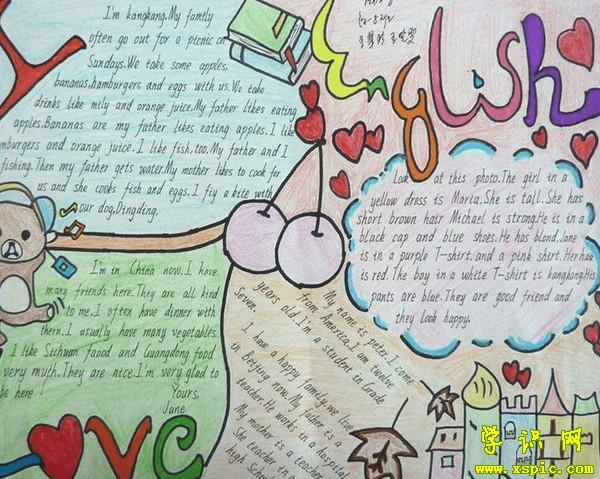 I'm kangkang.My family
often go out for a picnic on
Sundays.We take some apples,
bananas,hamburgers and eggs with us.We take
drinks like mily and orange juice.My father likes eating
apples.Bananas are my father likes eating apples, I like
mburgers and orange juice. I like fish,too.My father and I
fishing.Then my father gets water.My mother likes to cook for
us and she cooks fish and eggs. I fiy a kite with
our dog,Dingding.
English
Look at this photo.The girl in a
yellow dress is Maria.She is tall. She has
short brown hair Michael is strong.He is in a
black cap and blue shoes.He has blond.Jane
is in a purple T-shirt.and a pink shirt.Her hair
is red. The boy in a white T-shirt is kangkang.His
pants are blue.They are good friend and
they look happy.
I'm in China now. I have
many friends here.They are all kind
to me.I often have dinner with
them. I usually have many vegetables.
I like Sichuan faood and Guangdong food
very myth.They are nice.I'm very glad to
be here !
Yours,
Jane
My name is peter.I come
from America.I am twelve
years old.I'm a student in Grade
Seven.
I have a happy family.we live
in Beijing now. My father is a
teacher.He works in a hospital
My mother is a teacher
She teacher in
high School
学识网
www.xspic.com